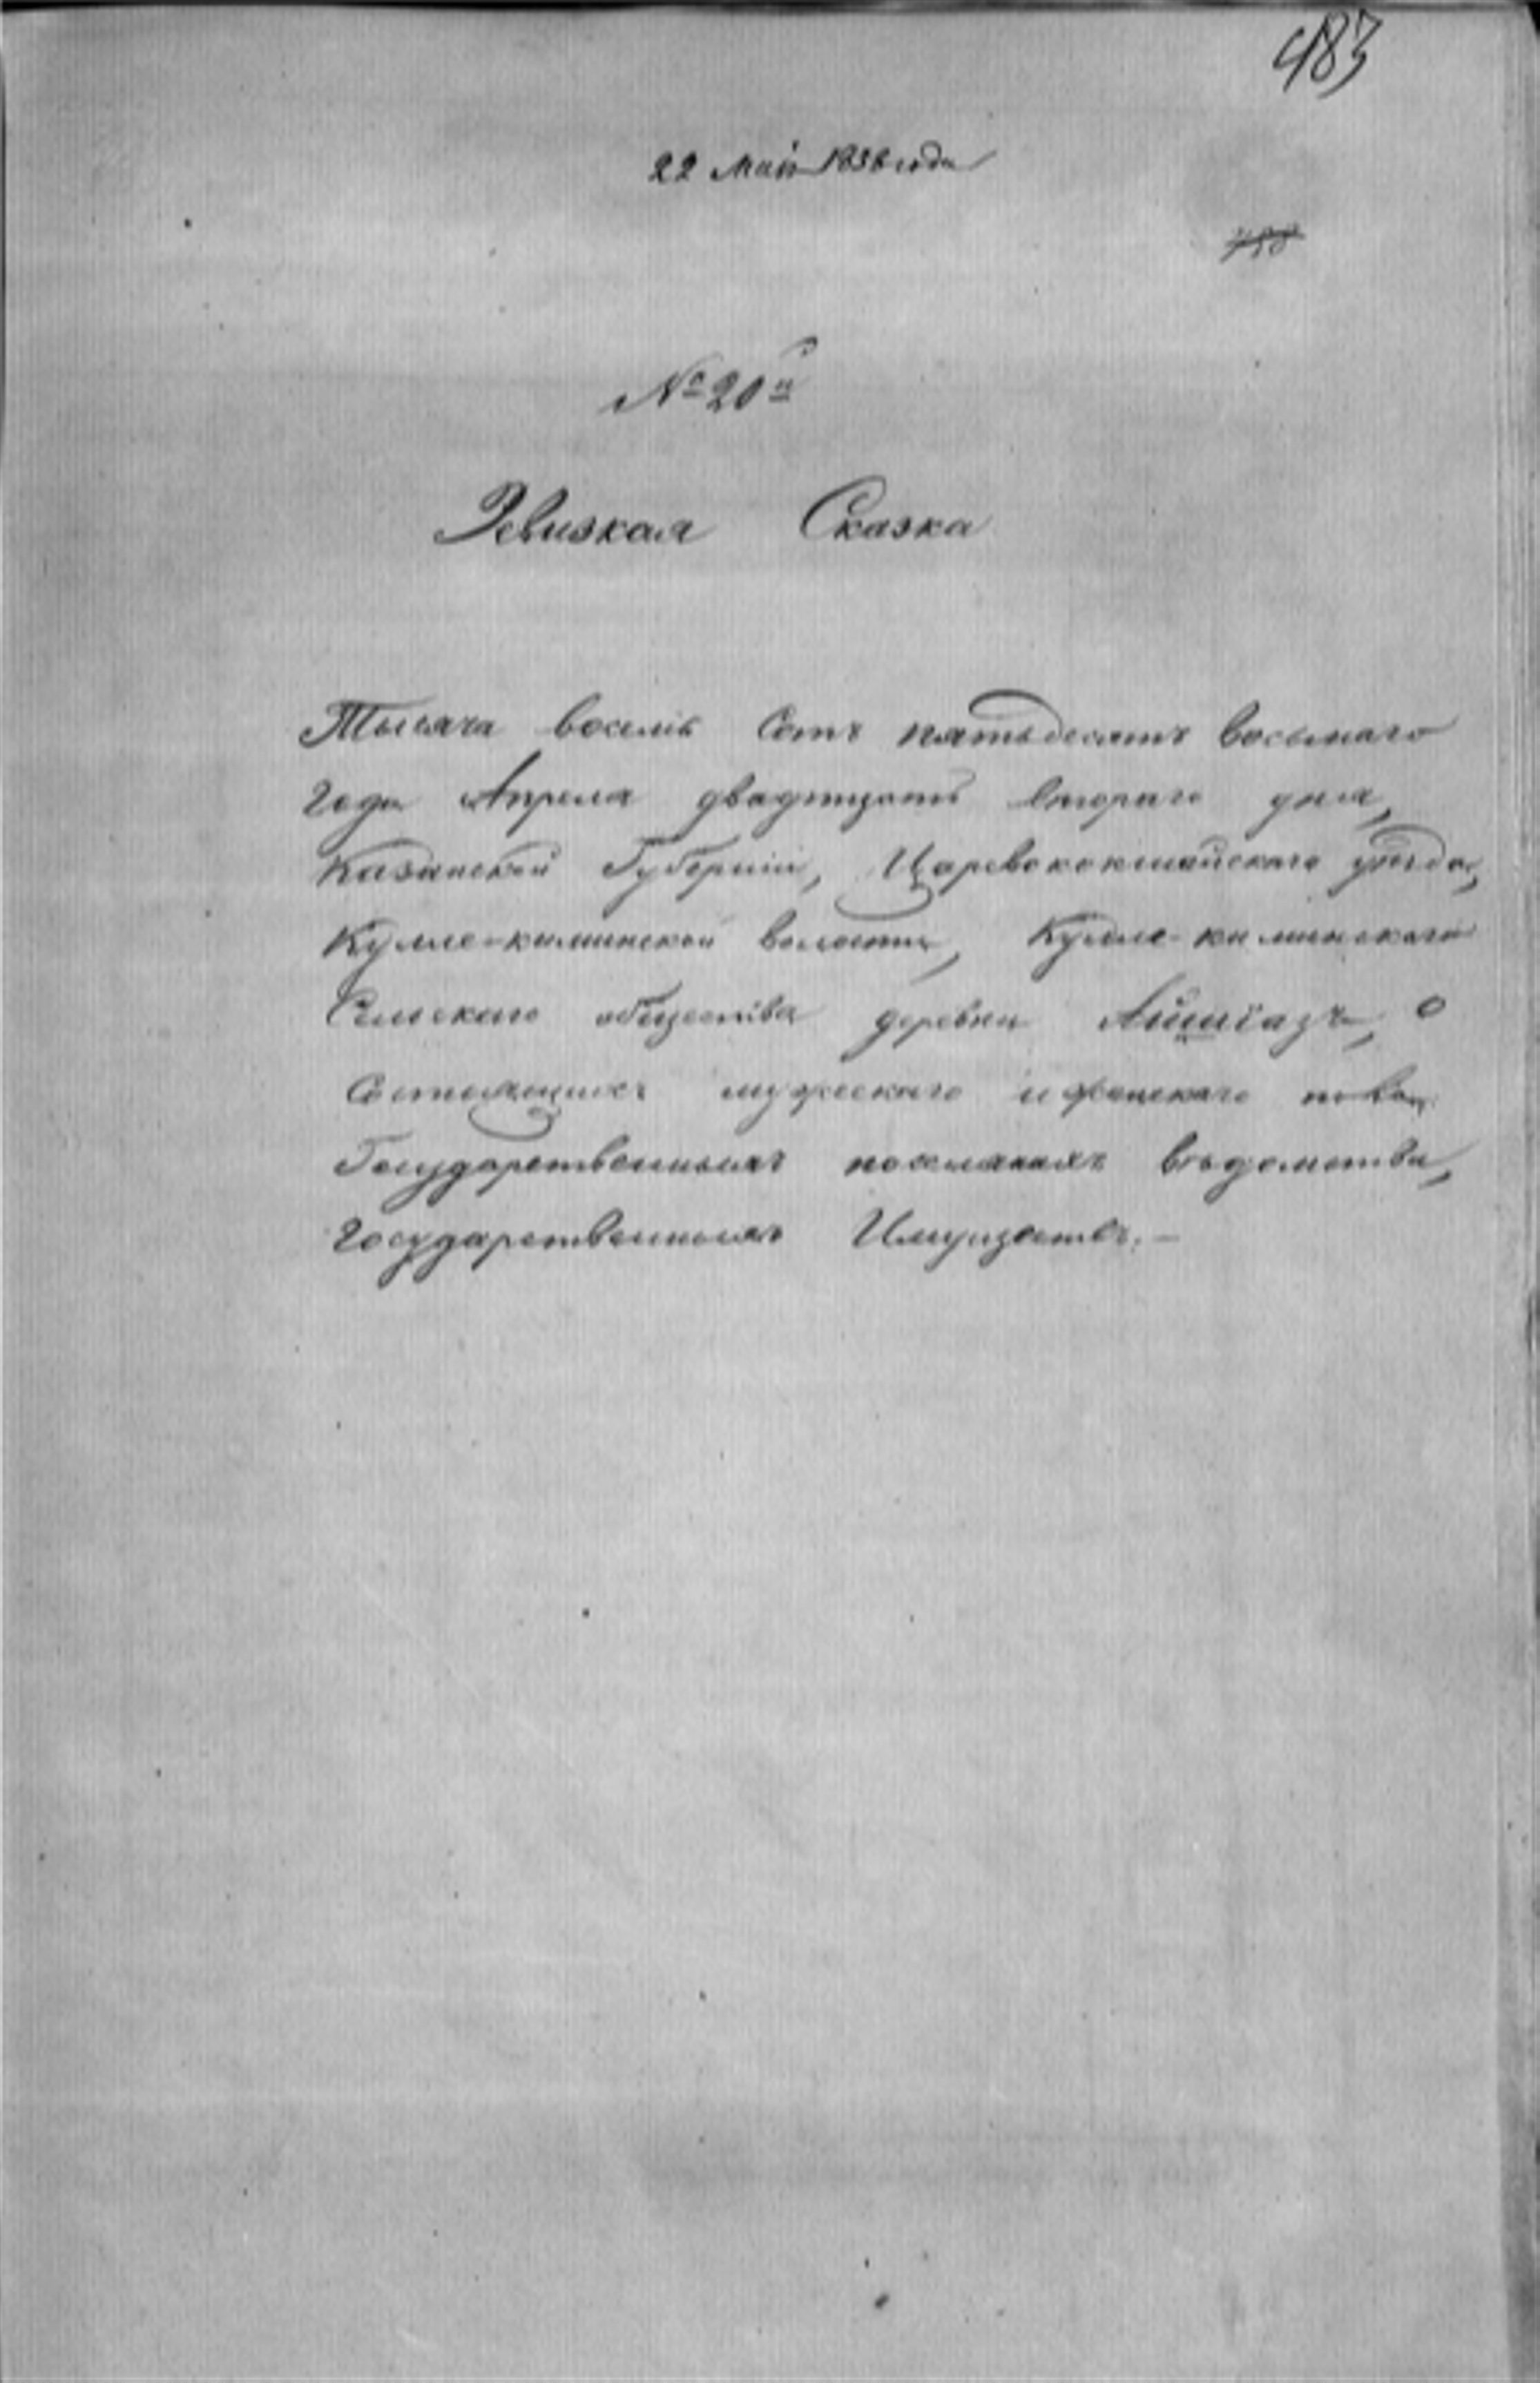 483
22 Мая 1858 года
№ 20й
Ревизкая Сказка
Тысяча восемь Сотъ пятьдесятъ восьмаго
года Апреля двадтцать втораго дня,
Казанской Губерніи, Царевококшайскаго уѣзда,
Кулле-киминской волости, Кулле-киминскаго
Сельскаго общества деревни Айшіазъ, о
Состоящихъ мужескаго и женскаго пола
Государственныхъ поселянахъ вѣдомства,
Государственныхъ Имуществъ.—